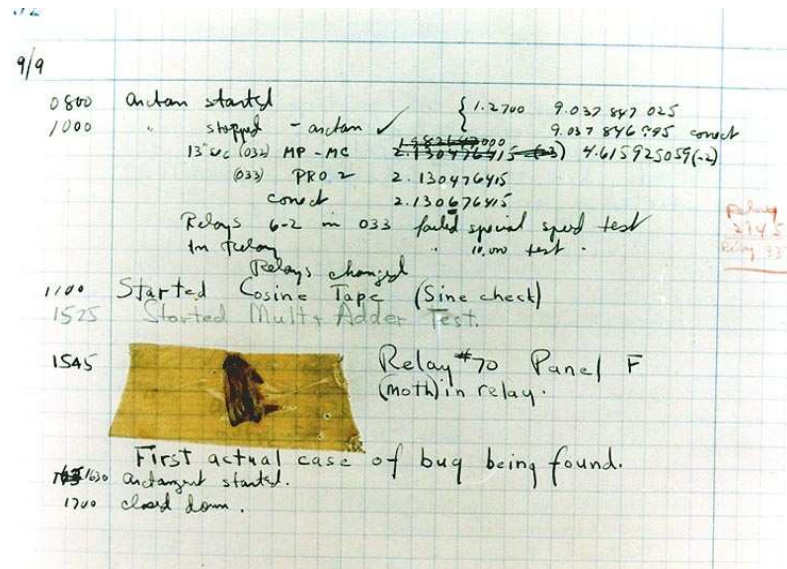 9/9
0800 arctan started { 1.2700 9.037 847 025
1000 " stopped - arctan ✓ 9.037 846 995 correct
13" sec (032) MP - MC 2.130476415 (-3) 4.615925059(-2)
(033) PRO 2 2.130476415
correct 2.130676415
Relays 6-2 in 033 failed special speed test
In Relay " 10,000 test .
Relays changed
1100 Started Cosine Tape (Sine check)
1525 Started Mult+ Adder Test.
1545 Relay #70 Panel F
(moth) in relay.
First actual case of bug being found.
1630 arctangent started.
1700 closed down .
Relay
2145
Relay 337